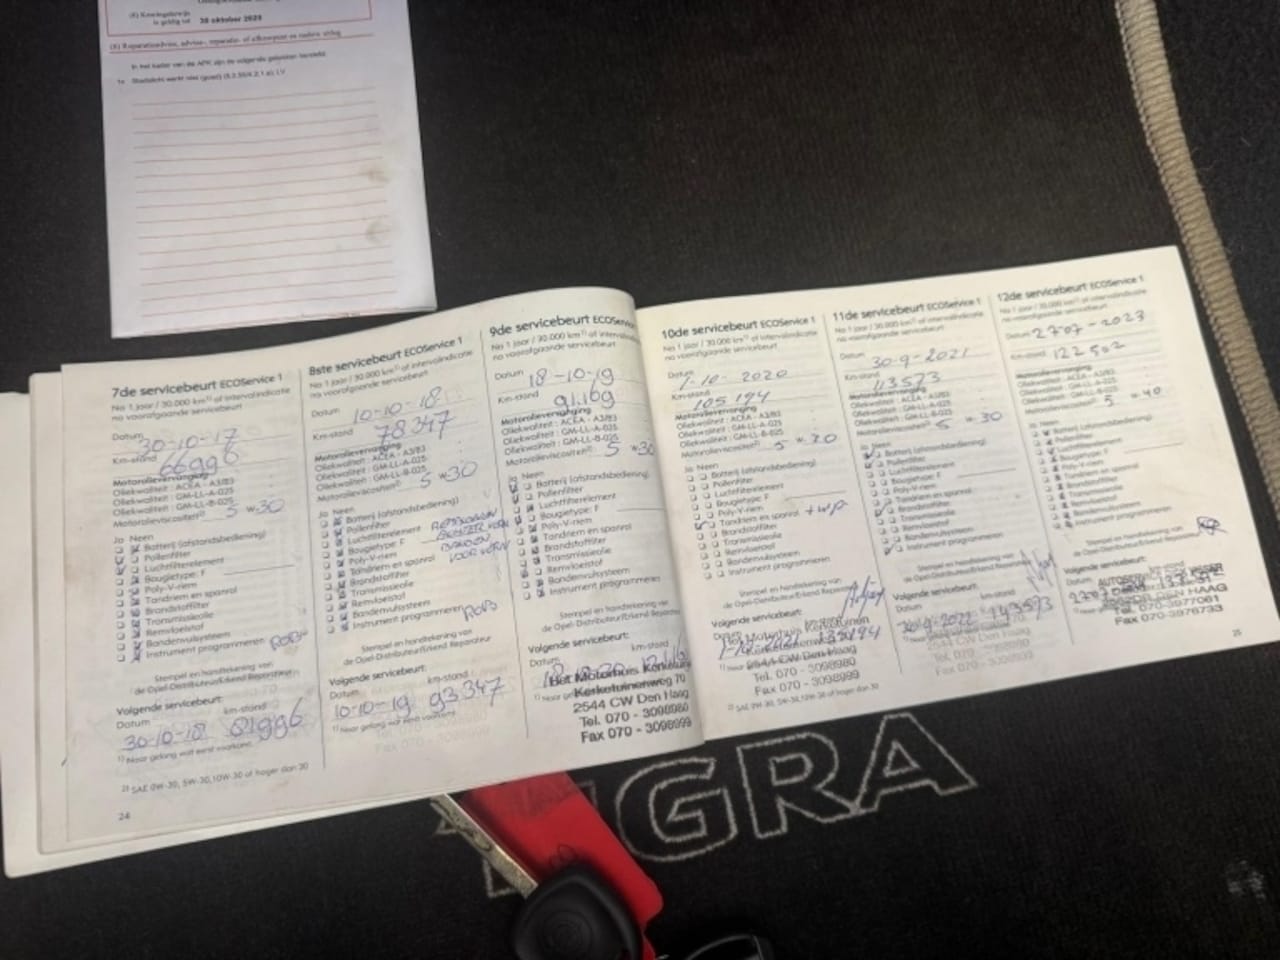 is geldig tot 20 oktober 2025
In het kader van de APK zijn de volgende gebreken hersteld:
7de servicebeurt ECOService 1
Na 1 jaar / 30.000 km¹⁾ of intervalindicatie
na voorafgaande servicebeurt
Datum 30-10-17
Km-stand 66996
Motorolieverversing
Oliekwaliteit : ACEA - A3/B3
Oliekwaliteit : GM-LL-A-025
Oliekwaliteit : GM-LL-B-025
Motorolieviscositeit²⁾ 5 W-30
Ja Neen
Batterij (afstandsbediening)
Pollenfilter
Luchtfilterelement
Bougietype: F
Poly-V-riem
Tandriem en spanrol
Brandstoffilter
Transmissieolie
Remvloeistof
Bandenvulsysteem
Instrument programmeren
Stempel en handtekening van
de Opel-Distributeur/Erkend Reparateur
Volgende servicebeurt:
Datum km-stand
30-10-18 81996
¹⁾ Naar gelang wat eerst voorkomt
²⁾ SAE 0W-30, 5W-30, 10W-30 of hoger dan 30
24
8ste servicebeurt ECOService 1
Na 1 jaar / 30.000 km¹⁾ of intervalindicatie
na voorafgaande servicebeurt
Datum 10-10-18
Km-stand 78347
Motorolieverversing
Oliekwaliteit : ACEA - A3/B3
Oliekwaliteit : GM-LL-A-025
Oliekwaliteit : GM-LL-B-025
Motorolieviscositeit²⁾ 5 W-30
Ja Neen
Batterij (afstandsbediening)
Pollenfilter
Luchtfilterelement
Bougietype: F
Poly-V-riem
Tandriem en spanrol
Brandstoffilter
Transmissieolie
Remvloeistof
Bandenvulsysteem
Instrument programmeren
BANDEN
VOOR VERN
Stempel en handtekening van
de Opel-Distributeur/Erkend Reparateur
Volgende servicebeurt:
Datum km-stand
10-10-19 93347
¹⁾ Naar gelang wat eerst voorkomt
9de servicebeurt ECOService
Na 1 jaar / 30.000 km¹⁾ of
na voorafgaande servicebeurt
Datum 18-10-19
Km-stand 91.169
Motorolieverversing
Oliekwaliteit : ACEA - A3/B3
Oliekwaliteit : GM-LL-A-025
Oliekwaliteit : GM-LL-B-025
Motorolieviscositeit²⁾ 5 W-30
Ja Neen
Batterij (afstandsbediening)
Pollenfilter
Luchtfilterelement
Bougietype: F
Poly-V-riem
Tandriem en spanrol
Brandstoffilter
Transmissieolie
Remvloeistof
Bandenvulsysteem
Instrument programmeren
Stempel en handtekening van
de Opel-Distributeur/Erkend
Volgende servicebeurt:
Datum km-stand
Het Motorhuis
Kerketuinenweg 70
2544 CW Den Haag
Tel. 070 - 3098980
Fax 070 - 3098999
10de servicebeurt ECOService 1
Na 1 jaar / 30.000 km¹⁾ of intervalindicatie
na voorafgaande servicebeurt
Datum 1-10-2020
Km-stand 105194
Motorolieverversing
Oliekwaliteit : ACEA - A3/B3
Oliekwaliteit : GM-LL-A-025
Oliekwaliteit : GM-LL-B-025
Motorolieviscositeit²⁾ 5 W-30
Ja Neen
Batterij (afstandsbediening)
Pollenfilter
Luchtfilterelement
Bougietype: F
Poly-V-riem
Tandriem en spanrol + WP
Brandstoffilter
Transmissieolie
Remvloeistof
Bandenvulsysteem
Instrument programmeren
Stempel en handtekening van
de Opel-Distributeur/Erkend
Volgende servicebeurt:
2544 CW Den Haag
Tel. 070 - 3098980
Fax 070 - 3098999
²⁾ SAE 0W-30, 5W-30, 10W-30 of hoger dan 30
11de servicebeurt ECOService 1
Na 1 jaar / 30.000 km¹⁾ of intervalindicatie
na voorafgaande servicebeurt
Datum 30-9-2021
Km-stand 113573
Motorolieverversing
Oliekwaliteit : ACEA - A3/B3
Oliekwaliteit : GM-LL-A-025
Oliekwaliteit : GM-LL-B-025
Motorolieviscositeit²⁾ 5 W-30
Ja Neen
Batterij (afstandsbediening)
Pollenfilter
Luchtfilterelement
Bougietype: F
Poly-V-riem
Tandriem en spanrol
Brandstoffilter
Transmissieolie
Remvloeistof
Bandenvulsysteem
Instrument programmeren
Stempel en handtekening van
de Opel-Distributeur/Erkend Reparateur
Volgende servicebeurt:
Datum km-stand
30-9-2022 143573
12de servicebeurt ECOService 1
Na 1 jaar / 30.000 km¹⁾ of intervalindicatie
na voorafgaande servicebeurt
Datum 27-07-2023
Km-stand 122502
Motorolieverversing
Oliekwaliteit : ACEA - A3/B3
Oliekwaliteit : GM-LL-A-025
Oliekwaliteit : GM-LL-B-025
Motorolieviscositeit²⁾ 5 W-40
Ja Neen
Batterij (afstandsbediening)
Pollenfilter
Luchtfilterelement
Bougietype: F
Poly-V-riem
Tandriem en spanrol
Brandstoffilter
Transmissieolie
Remvloeistof
Bandenvulsysteem
Instrument programmeren
Stempel en handtekening van
de Opel-Distributeur/Erkend Reparateur
Volgende servicebeurt:
Datum km-stand
DEN HAAG
Tel. 070-3977081
Fax 070-3976733
25